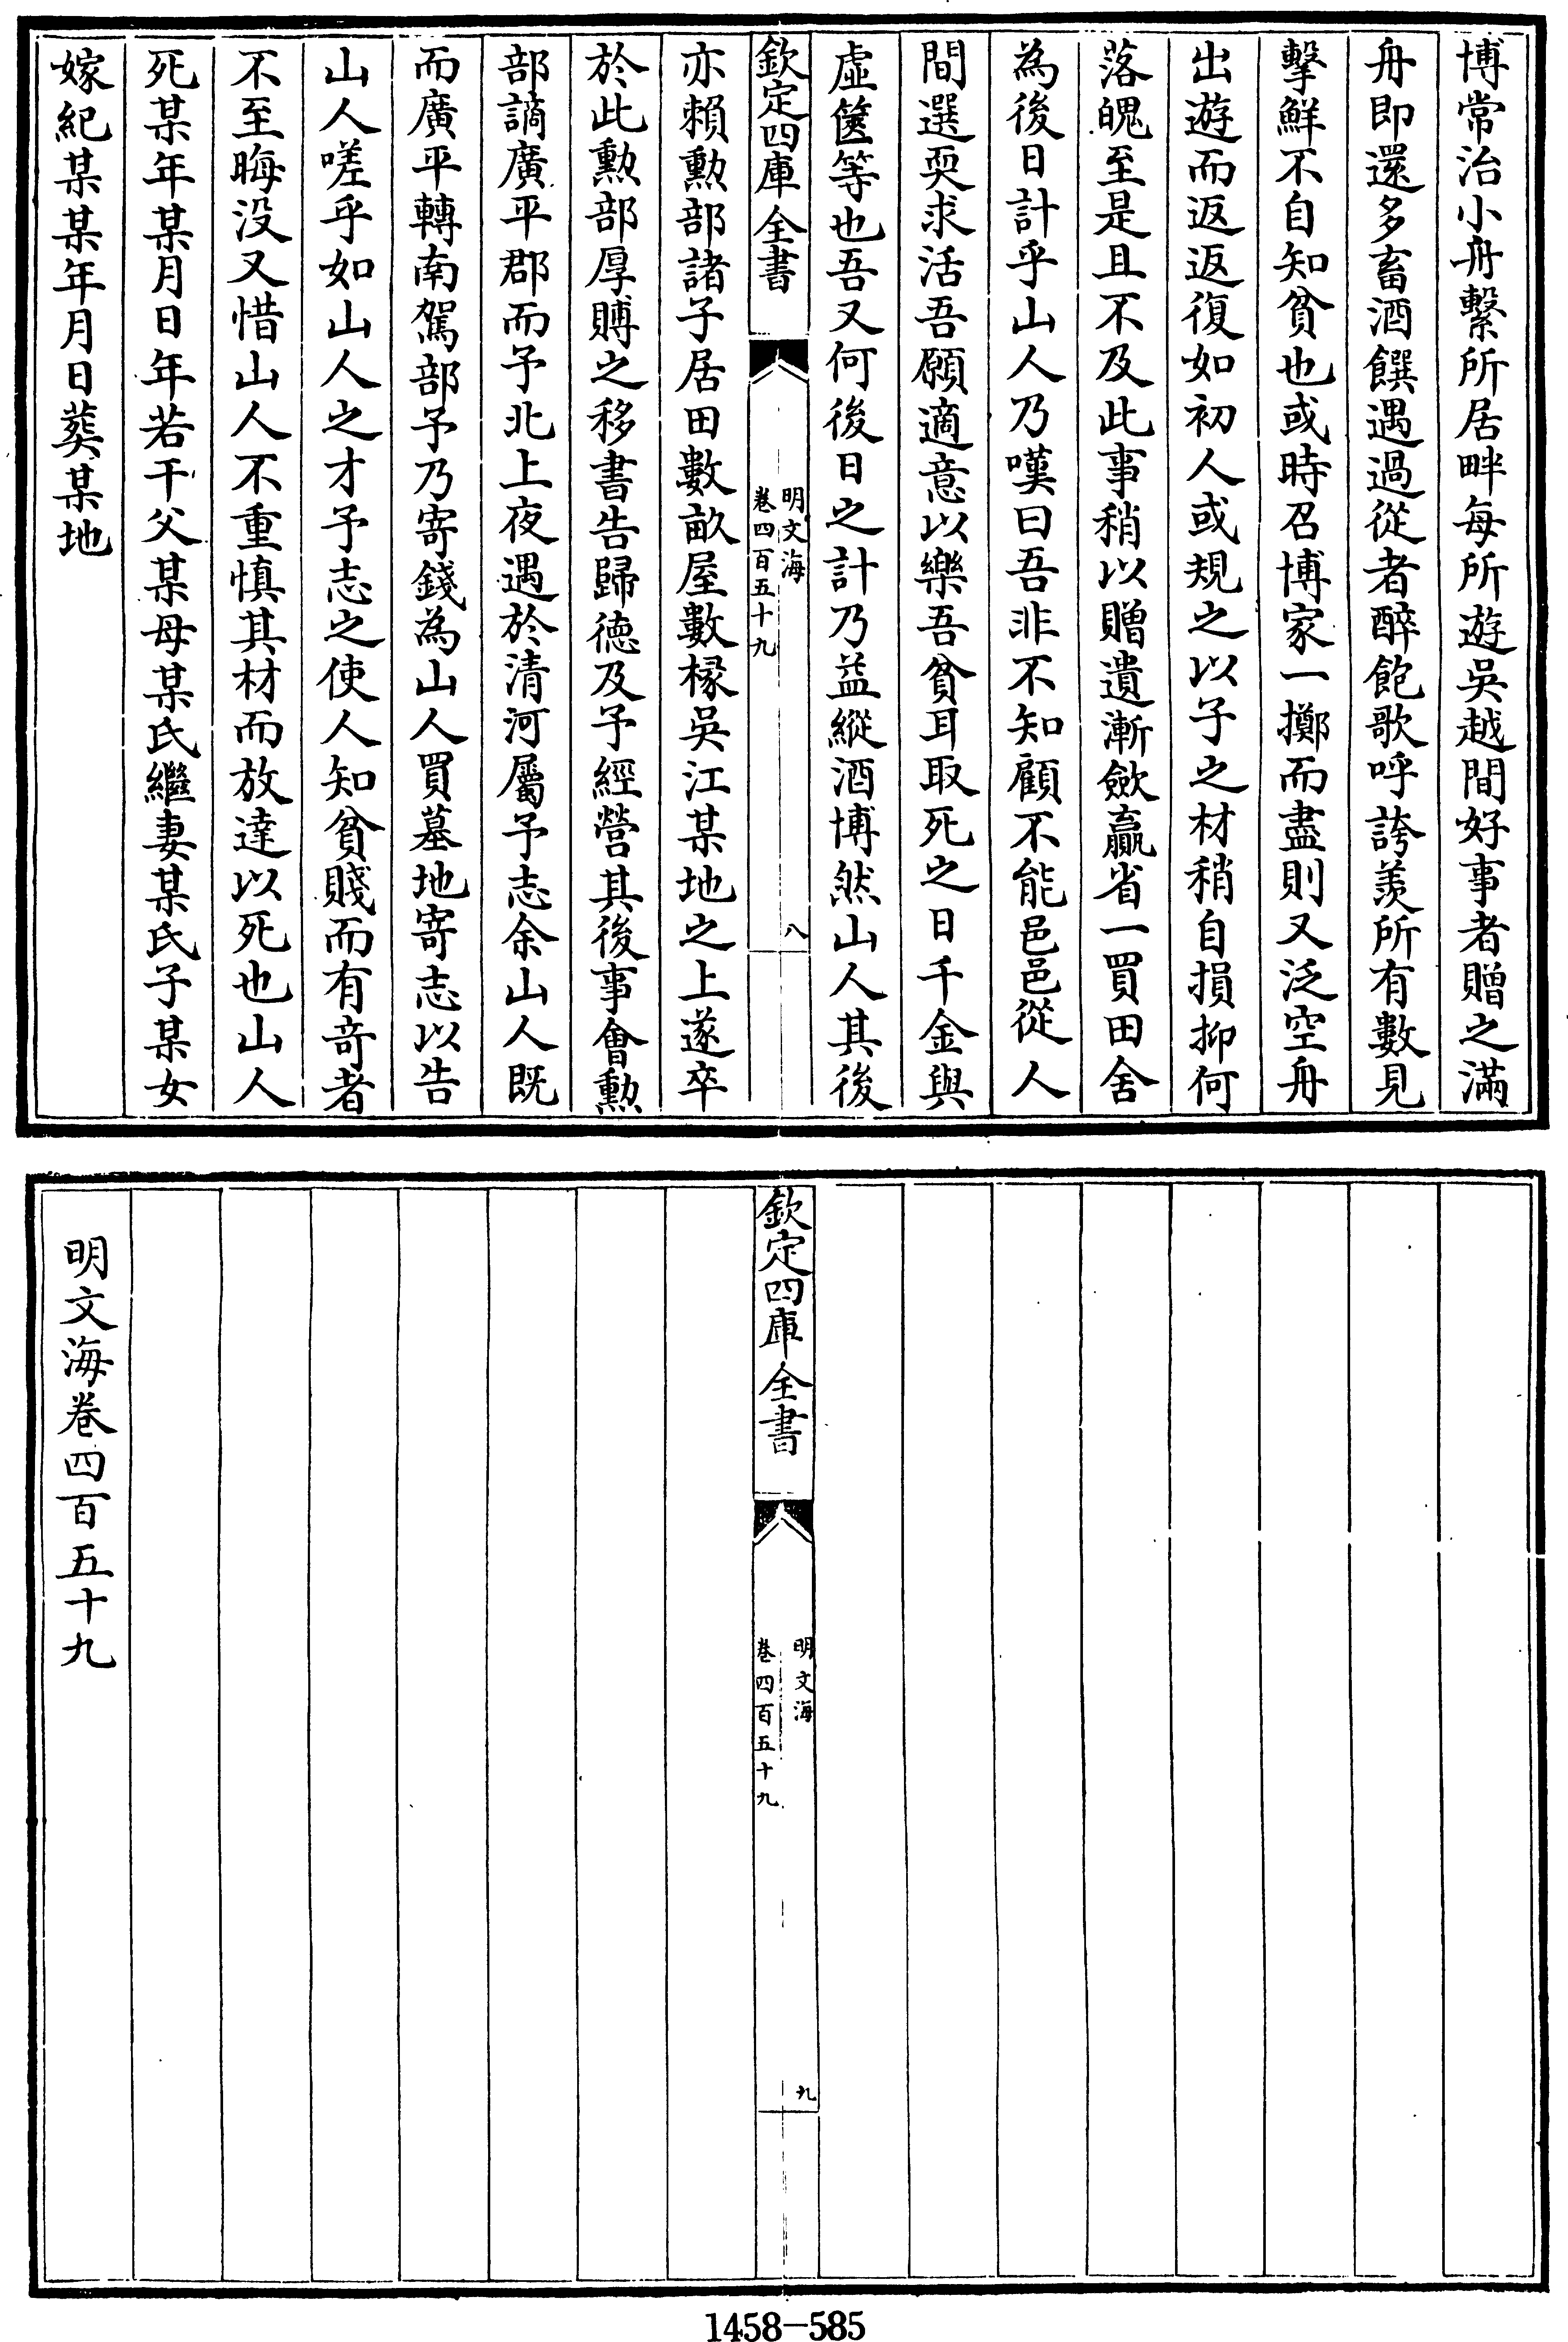 博常治小舟繫所居畔每所遊吳越間好事者贈之滿
舟即還多畜酒饌遇過從者醉飽歌呼誇羨所有數見
擊鮮不自知貧也或時召博家一擲而盡則又泛空舟
出遊而返返復如初人或規之以子之材稍自損抑何
落魄至是且不及此事稍以贈遺漸歛贏省一買田舍
為後日計乎山人乃嘆曰吾非不知顧不能邑邑從人
間選耎求活吾願適意以樂吾貧耳取死之日千金與
虛篋等也吾又何後日之計乃益縱酒博然山人其後
欽定四庫全書
明文海
卷四百五十九
八
亦賴勲部諸子居田數畝屋數椽吳江某地之上遂卒
於此勲部厚賻之移書告歸德及予經營其後事會勲
部謫廣平郡而予北上夜遇於清河屬予志余山人既
而廣平轉南駕部予乃寄錢為山人買墓地寄志以告
山人嗟乎如山人之才予志之使人知貧賤而有竒者
不至晦没又惜山人不重慎其材而放達以死也山人
死某年某月日年若干父某母某氏繼妻某氏子某女
嫁紀某某年月日葬某地
欽定四庫全書
明文海
卷四百五十九
九
明文海卷四百五十九
1458-585